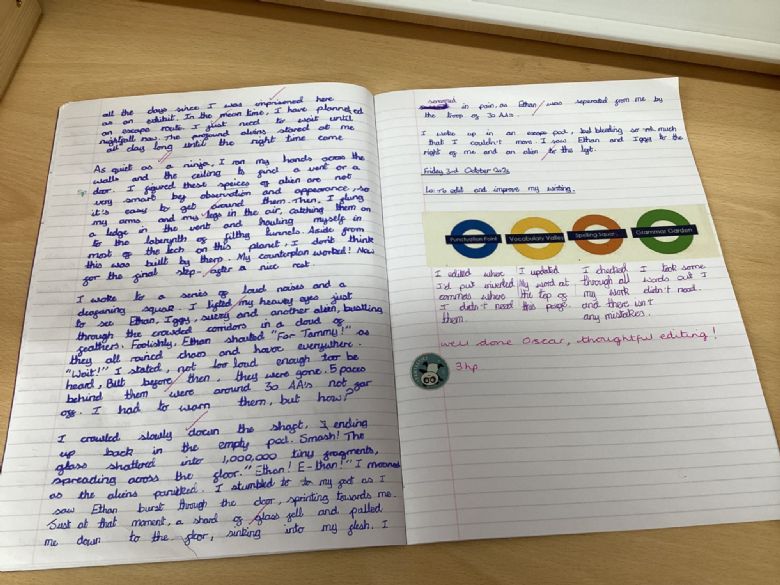 all the days since I was imprisoned here
as an exhibit. In the mean time, I have planned
an escape route. I just need to wait until
nightfall now. The profound aliens stared at me
all day long until the right time came
As quiet as a ninja, I ran my hands across the
walls and the ceiling to find a vent or a
door. I figured these speices of alien are not
very smart by observation and appearance, so
it's easy to get around them. Then, I flung
my arms and my legs in the air, catching them on
a ledge in the vent and hauling myself in
to the labernyth of filthy tunnels. Aside from
most of the tech on this planet, I don't think
this was built by them. My counterplan worked! Now
for the final step - after a nice rest.
I woke to a series of loud noises and a
deafaning squak. I lifted my heavy eyes just
to see Ethan, Iggy, and another alien, bustling
through the crowded corridors in a cloud of
feathers. Foolishly, Ethan shouted "For Tommy!" as
they all rained chaos and havoc everywhere.
"Wait!" I stated, not too loud enough too be
heard, But before then, they were gone. 5 paces
behind them were around 30 AA's not far
off. I had to warn them, but how?
I crawled slowly down the shaft, ending
up back in the empty pod. Smash! The
glass shatterd into 1,000,000 tiny fragments,
spreading across the floor. "Ethan! E-than!" I moaned
as the aliens panicked. I stumbled to my feet as I
saw Ethan burst through the door, sprinting towards me.
Just at that moment, a shard of glass fell and pulled
me down to the floor, sinking into my flesh. I
screamed
in pain, as Ethan was seperated from me by
the troop of 30 AA's.
I woke up in an escape pod, but bleeding so much
that I couldn't move. I saw Ethan and Iggy to the
right of me and an alien to the left.
Friday 3rd October
Lo: To edit and improve my writing.
Punctuation Point Vocabulary Valley Spelling Square Grammar Garden
I edited where I updated I checked I took some
I'd put inverted my word at through all words out I
commas where the top of my work didn't need.
I didn't need this page. and there isn't
them. any mistakes.
well done Oscar, thoughtful editing!
3hp